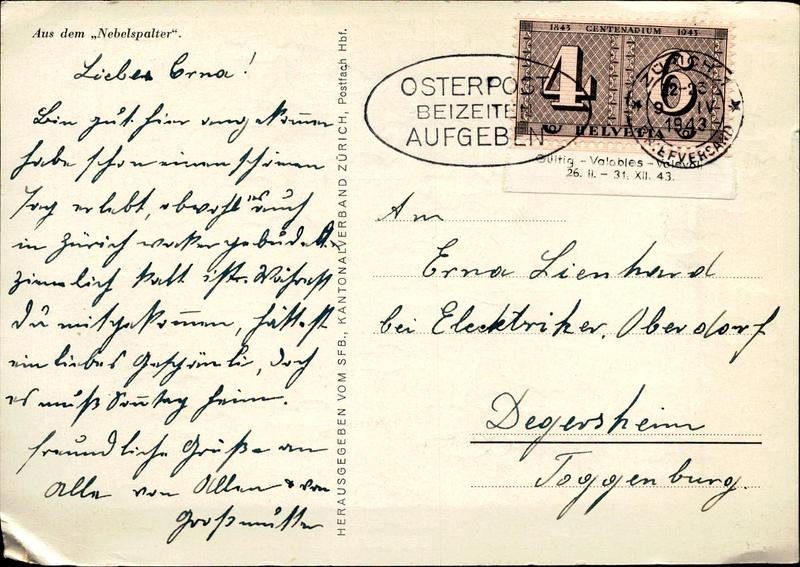 Aus dem „Nebelspalter“.
Liebes Erna!
Bin gut hier angekommen
habe schon einen schönen
Tag erlebt, obwohl es auch
in Zürich
ziemlich kalt ist. Wärest
Du mitgekommen, hättest
ein liebes Gespänli, doch
es muß Sonntag heim.
freundliche Grüße an
alle von Allen & von
Großmutter
HERAUSGEGEBEN VOM SFB., KANTONALVERBAND ZÜRICH, Postfach Hbf.
OSTERPOST
BEIZEITEN
AUFGEBEN
1843 CENTENARIUM 1943
4 6
HELVETIA
ZÜRICH
12-23
9. IV
1943
BRIEFVERSAND
Gültig - Valables - Valevoli
26. II. - 31. XII. 43.
An
Erna Lienhard
bei Elektriker, Oberdorf
Degersheim
Toggenburg.